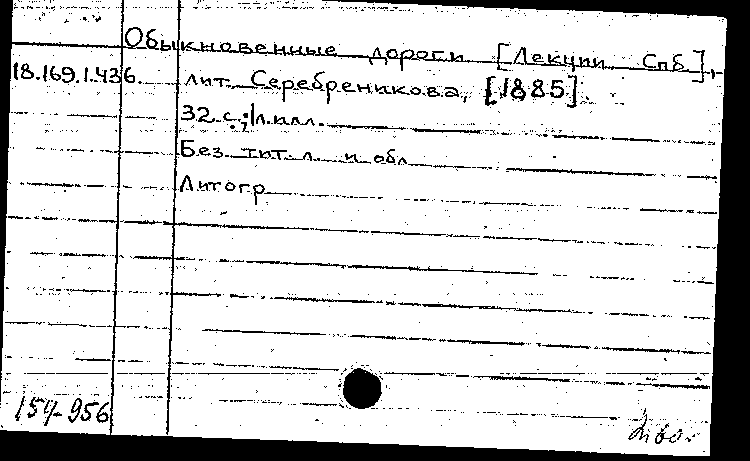 Обыкновенные дороги [Лекции. Спб],
18.169.1.436. лит. Серебреникова, [1885].
32 с.; 1 л. илл.
Без тит. л. и обл.
Литогр.
154-956